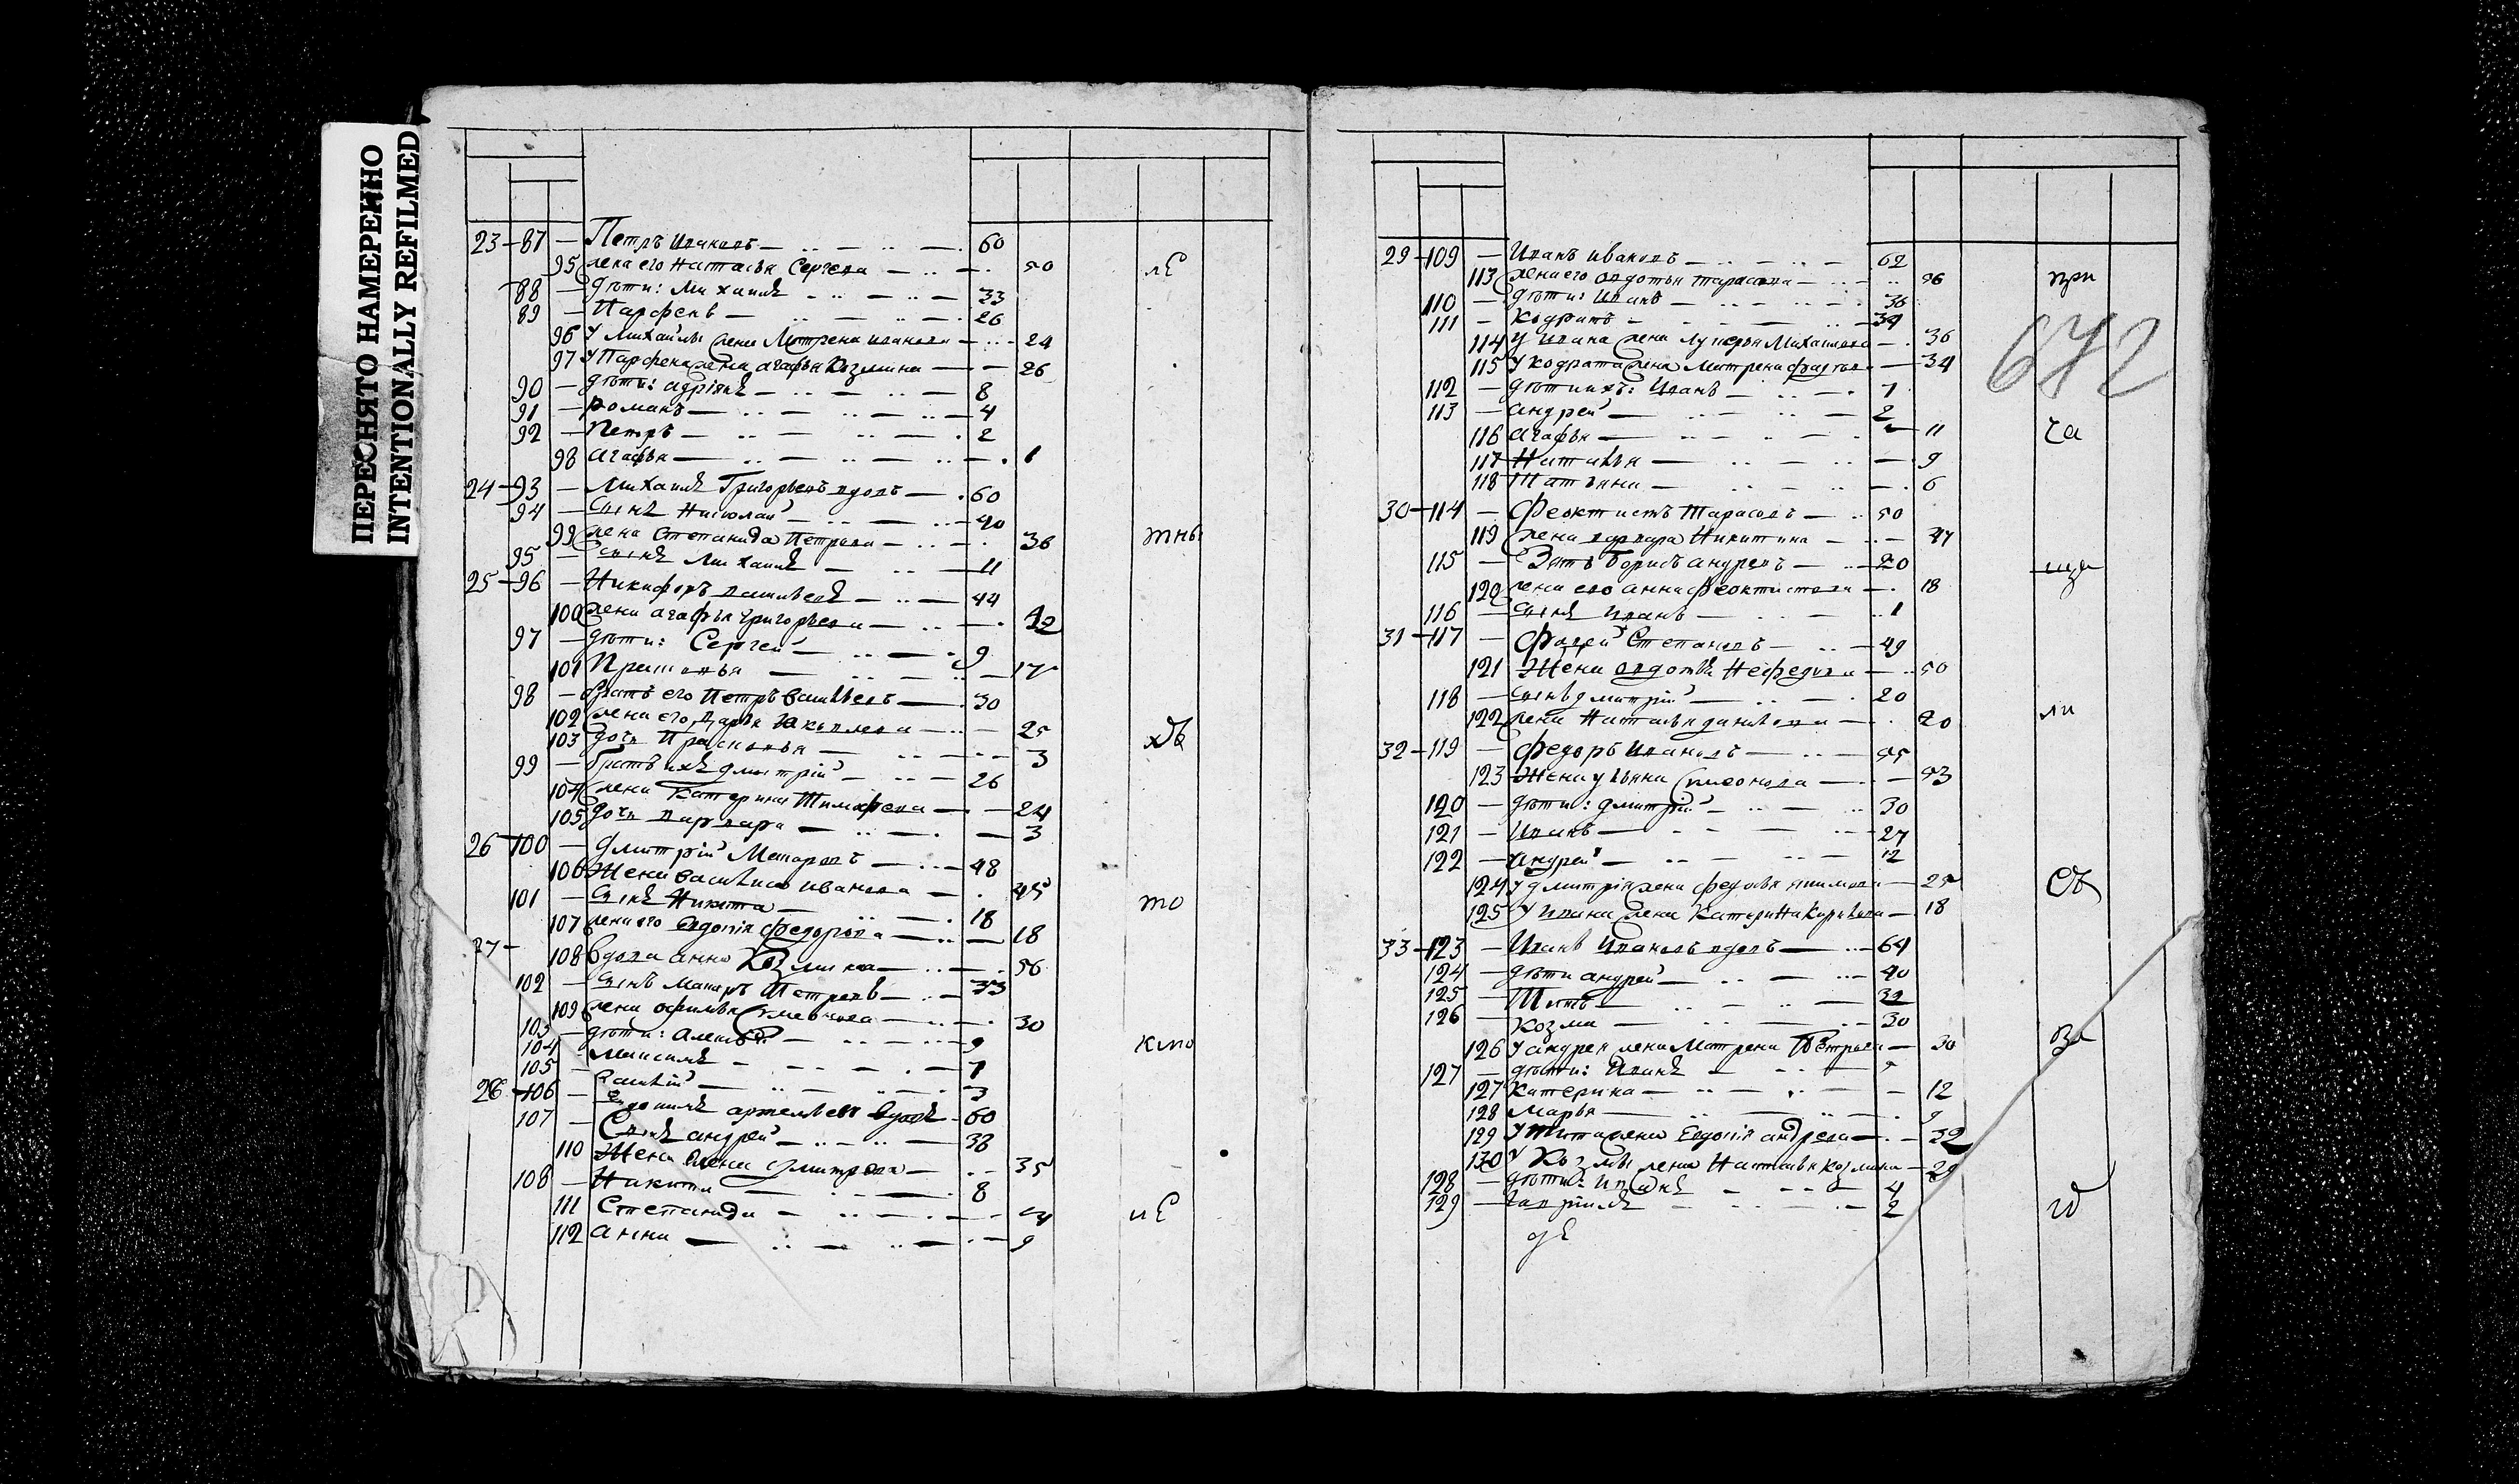 ПЕРЕСНЯТО НАМЕРЕННО
INTENTIONALLY REFILMED
23 – 87 – Петръ Ивановъ – 60
95 жена его Наталья Сергеева – 50 лѣ
88 – дѣти: Михаилъ – 33
89 – Парфенъ – 26
96 У Михайлы жена Матрена Иванова – 24
97 У Парфена жена агафья Козмина – 26
90 – дѣти: адріянъ – 8
91 – романъ – 4
92 – Петръ – 2
98 агафья – 1
24 – 93 – Михаилъ Григорьевъ вдовъ – 60
94 – сынъ Николай – 40
99 жена Степанида Петрова – 36 тны
95 – сынъ Михаилъ – 11
25 – 96 – Никифоръ васильевъ – 44
100 жена агафья григорьева – 42
97 – дѣти: Сергей – 9
101 Прасковья – 17
98 – братъ его Петръ васильевъ – 30
102 жена его Дарья Яковлева – 25
103 дочь Прасковья – 3
99 – братъ ихъ дмитрій – 26
104 жена Катерина Тимофеева – 24
105 дочь варвара – 3
26 – 100 – дмитрій – 48
106 Жена василиса иванова – 45
101 – сынъ Никита – 18 то
107 жена его Евдокія федорова – 18
27 –
108 вдова анна Козмина – 56
102 – сынъ Макаръ Петровъ – 33
109 жена офимья Симеонова – 30
103 – дѣти: Алексѣй – 9
104 – Максимъ – 7
105 – Василій – 3
28 – 106 – артемьевъ вдовъ – 60
107 – Сынъ андрей – 38
110 Жена елена дмитрева – 35
108 – Никита – 8
111 Степанида – 14 нѣ
112 анна – 9
29 – 109 – Иванъ ивановъ – 62
113 жена его авдотья тарасова – 56 при
110 – дѣти: Иванъ – 36
111 – Кодратъ – 34
114 У ивана жена лукерья Михайлова – 36
115 У кодрата жена Матрена – 34
112 – дѣти ихъ: Иванъ – 7
113 – андрей – 2
116 агафья – 11 ча
117 Наталья – 9
118 Татьяна – 6
30 – 114 – Феоктистъ Тарасовъ – 50
119 жена варвара Никитина – 47
115 – Зять борисъ андревъ – 20
120 жена его анна феоктистова – 18
116 – сынъ иванъ – 1
31 – 117 – фадей Степановъ – 49
121 Жена авдотья Нефедова – 50
118 – сынъ дмитрій – 20
122 жена Наталья данилова – 20
32 – 119 – федоръ Ивановъ – 55
123 Жена ульяна Симеонова – 53
120 – дѣти: дмитрій – 30
121 – Иванъ – 27
122 – андрей – 12
124 У дмитрія жена федосья – 25
125 У ивана жена Катерина Кирилова – 18
33 – 123 – Иванъ Ивановъ вдовъ – 64
124 – дѣти андрей – 40
125 – Титъ – 32
126 – Козма – 30
126 У андрея жена Матрена Петрова – 30
127 – дѣти: Иванъ
127 Катерина – 12
128 Марья – 9
129 У Тита жена Евдокія андреева – 32
130 У Козмы жена Наталья козмина – 29
128 – дѣти: Иванъ – 4
129 – гавріилъ – 2
672